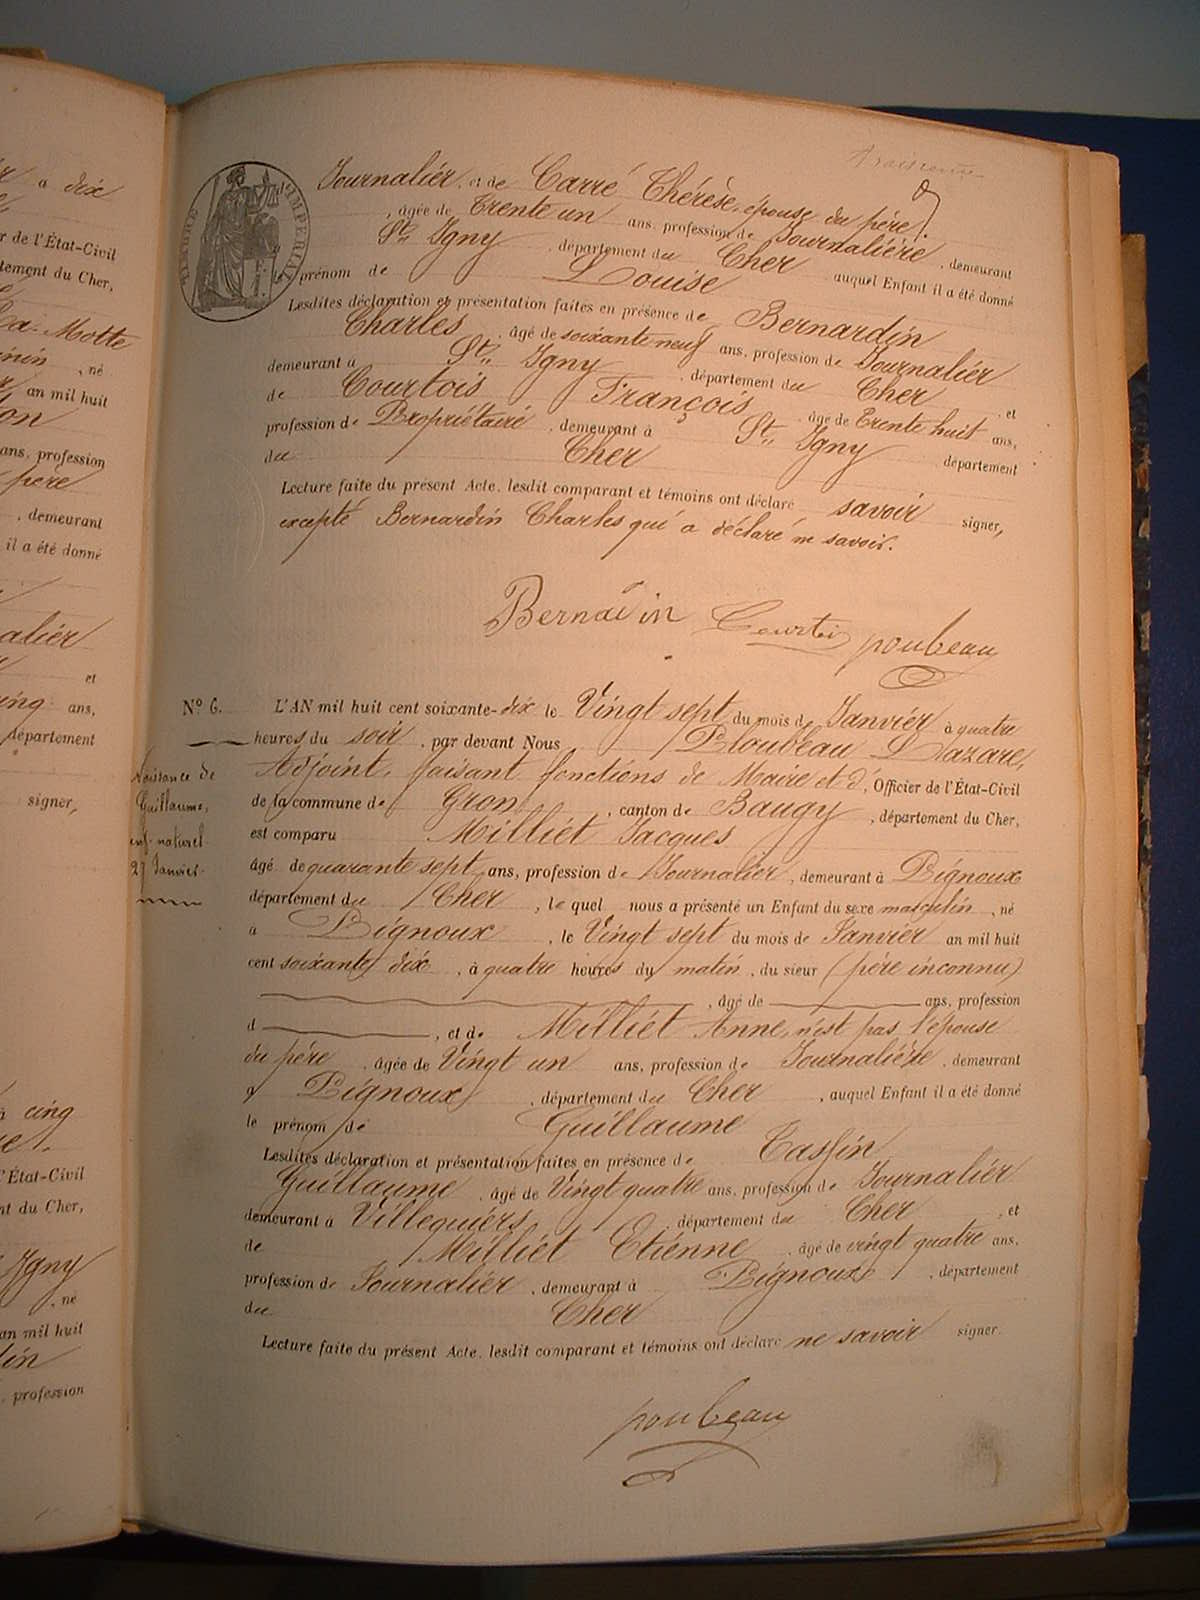 r a dix
r de l'État-Civil
tement du Cher,
La Motte
, né
an mil huit
ans, profession
père
, demeurant
il a été donné
alier
et
ans,
département
signer,
cinq
l'État-Civil
nt du Cher,
Igny
, né
an mil huit
, profession
TIMBRE IMPERIAL
Troisième
Journalier, et de Carré Thérèse, épouse du père,
, âgée de Trente un ans, profession de Journalière, demeurant
St Igny, département du Cher auquel Enfant il a été donné
le prénom de Louise
Lesdites déclaration et présentation faites en présence de Bernardin
Charles, âgé de soixante neuf ans, profession de Journalier
demeurant à St Igny, département du Cher, et
de Courtois François, âgé de Trente huit ans,
profession de Propriétaire, demeurant à St Igny département
du Cher
Lecture faite du présent Acte, lesdit comparant et témoins ont déclaré savoir signer,
excepté Bernardin Charles qui a déclaré ne savoir.
Bernardin Courtois ploubeau
N° 6. L'AN mil huit cent soixante-dix le Vingt sept du mois de Janvier à quatre
heures du soir, par devant Nous Ploubeau Lazare,
Adjoint, faisant fonctions de Maire et d', Officier de l'État-Civil
de la commune de Gron, canton de Baugy, département du Cher,
est comparu Milliet Jacques
âgé de quarante sept ans, profession de Journalier, demeurant à Pignoux
département du Cher, le quel nous a présenté un Enfant du sexe masculin, né
à Pignoux, le Vingt sept du mois de Janvier an mil huit
cent soixante dix, à quatre heures du matin, du sieur (père inconnu)
, âgé de ans, profession
d , et de Milliet Anne, n'est pas l'épouse
du père, âgée de Vingt un ans, profession de Journalière, demeurant
à Pignoux, département du Cher, auquel Enfant il a été donné
le prénom de Guillaume
Lesdites déclaration et présentation faites en présence de Tassin
Guillaume, âgé de Vingt quatre ans, profession de Journalier
demeurant à Villequiers, département du Cher, et
de Milliet Etienne, âgé de vingt quatre ans,
profession de Journalier, demeurant à Pignoux, département
du Cher
Lecture faite du présent Acte, lesdit comparant et témoins ont déclaré ne savoir signer.
ploubeau
Naissance de
Guillaume,
enf. naturel
27 Janvier